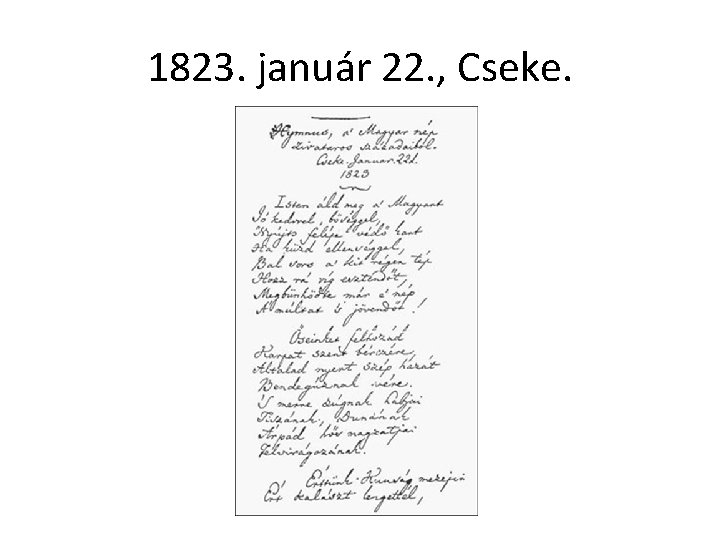 1823. január 22. , Cseke.
Hymnus, a' Magyar nép
zivataros századaiból.
Cseke. Januar. 22d.
1823
Isten áld meg a' Magyart
Jó kedvvel, bőséggel,
Nyújts feléje védő kart
Ha küzd ellenséggel,
Bal sors a' kit régen tép
Hozz rá víg esztendőt,
Megbűnhődte már e' nép
A' múltat 's jövendőt!
Őseinket felhozád
Kárpát szent bérczére,
Általad nyert szép hazát
Bendegúznak vére.
'S merre zúgnak habjai
Tiszának, Dunának
Árpád hős magzatjai
Felvirágozának.
Értünk Kunság mezején
Ért kalászt lengettél,